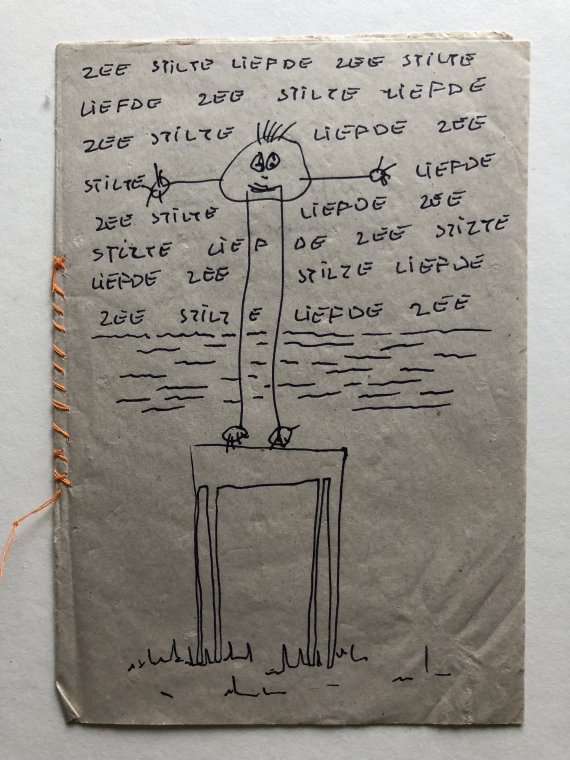 ZEE STILTE LIEFDE ZEE STILTE
LIEFDE ZEE STILTE LIEFDE
ZEE STILTE LIEFDE ZEE
STILTE LIEFDE
ZEE STILTE LIEFDE ZEE
STILTE LIEFDE ZEE STILTE
LIEFDE ZEE STILTE LIEFDE
ZEE STILTE LIEFDE ZEE